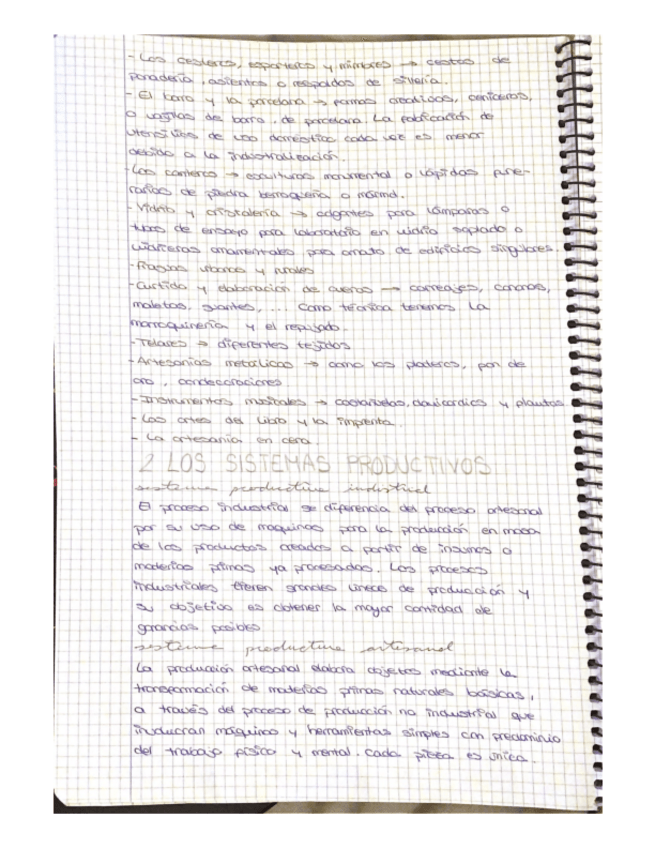 - Los cesteros, esparteros y mimbres → cestas de
panadería, asientos o respaldos de sillería.
- El barro y la porcelana → formas creativas, ceniceros,
o vajillas de barro, de porcelana. La fabricación de
utensilios de uso doméstico cada vez es menor
debido a la industrialización.
- Los canteros → esculturas monumental o lápidas fune-
rarias de piedra berroqueña o mármol.
- Vidrio y cristalería → colgantes para lámparas o
tubos de ensayo para laboratorio en vidrio soplado o
vidrieras ornamentales para ornato de edificios singulares.
- Fraguas urbanas y rurales
- Curtido y elaboración de cueros → correajes, coronas,
maletas, guantes, ... Como técnica tenemos la
marroquinería y el repujado.
- Telares → diferentes tejidos
- Artesanías metálicas → como los plateros, pan de
oro, condecoraciones
- Instrumentos musicales → castañuelas, clavicordios y
- Las artes del libro y la imprenta.
- La artesanía en cera
2 LOS SISTEMAS PRODUCTIVOS
sistema productivo industrial
El proceso industrial se diferencia del proceso artesanal
por su uso de maquinas para la producción en masa
de los productos creados a partir de insumos o
materias primas ya procesadas. Los procesos
industriales tienen grandes líneas de producción y
su objetivo es obtener la mayor cantidad de
ganancias posibles
sistema productivo artesanal
La producción artesanal elabora objetos mediante la
transformación de materias primas naturales básicas,
a través del proceso de producción no industrial que
involucran máquinas y herramientas simples con predominio
del trabajo físico y mental. Cada pieza es única.